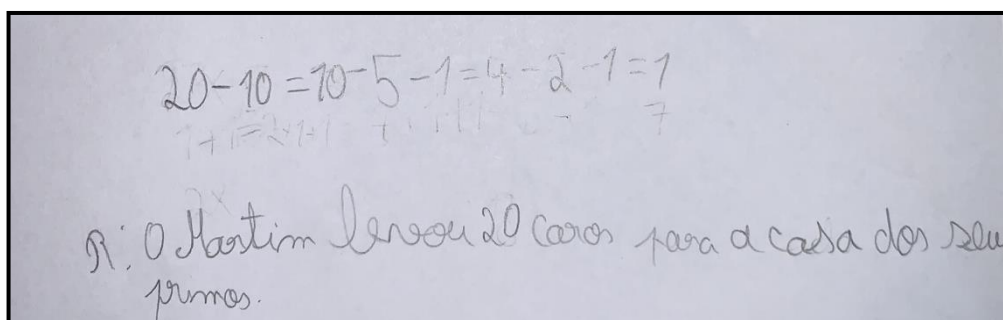 20-10=10-5-1=4-2-1=1
R: O Martim levou 20 caros para a casa dos seu
primos.